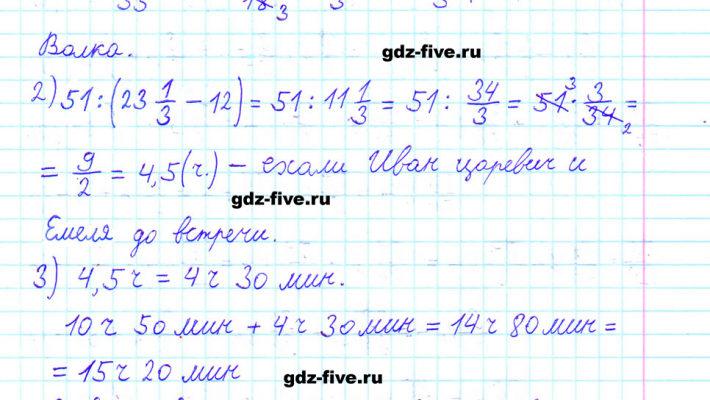 Волка.
gdz-five.ru
2) 51 : (23 1/3 − 12) = 51 : 11 1/3 = 51 : 34/3 = 51 3 · 3/34 2 =
= 9/2 = 4,5 (ч.) – ехали Иван царевич и
gdz-five.ru
Емеля до встречи.
3) 4,5 ч = 4 ч 30 мин.
10 ч 50 мин + 4 ч 30 мин = 14 ч 80 мин =
= 15 ч 20 мин
gdz-five.ru